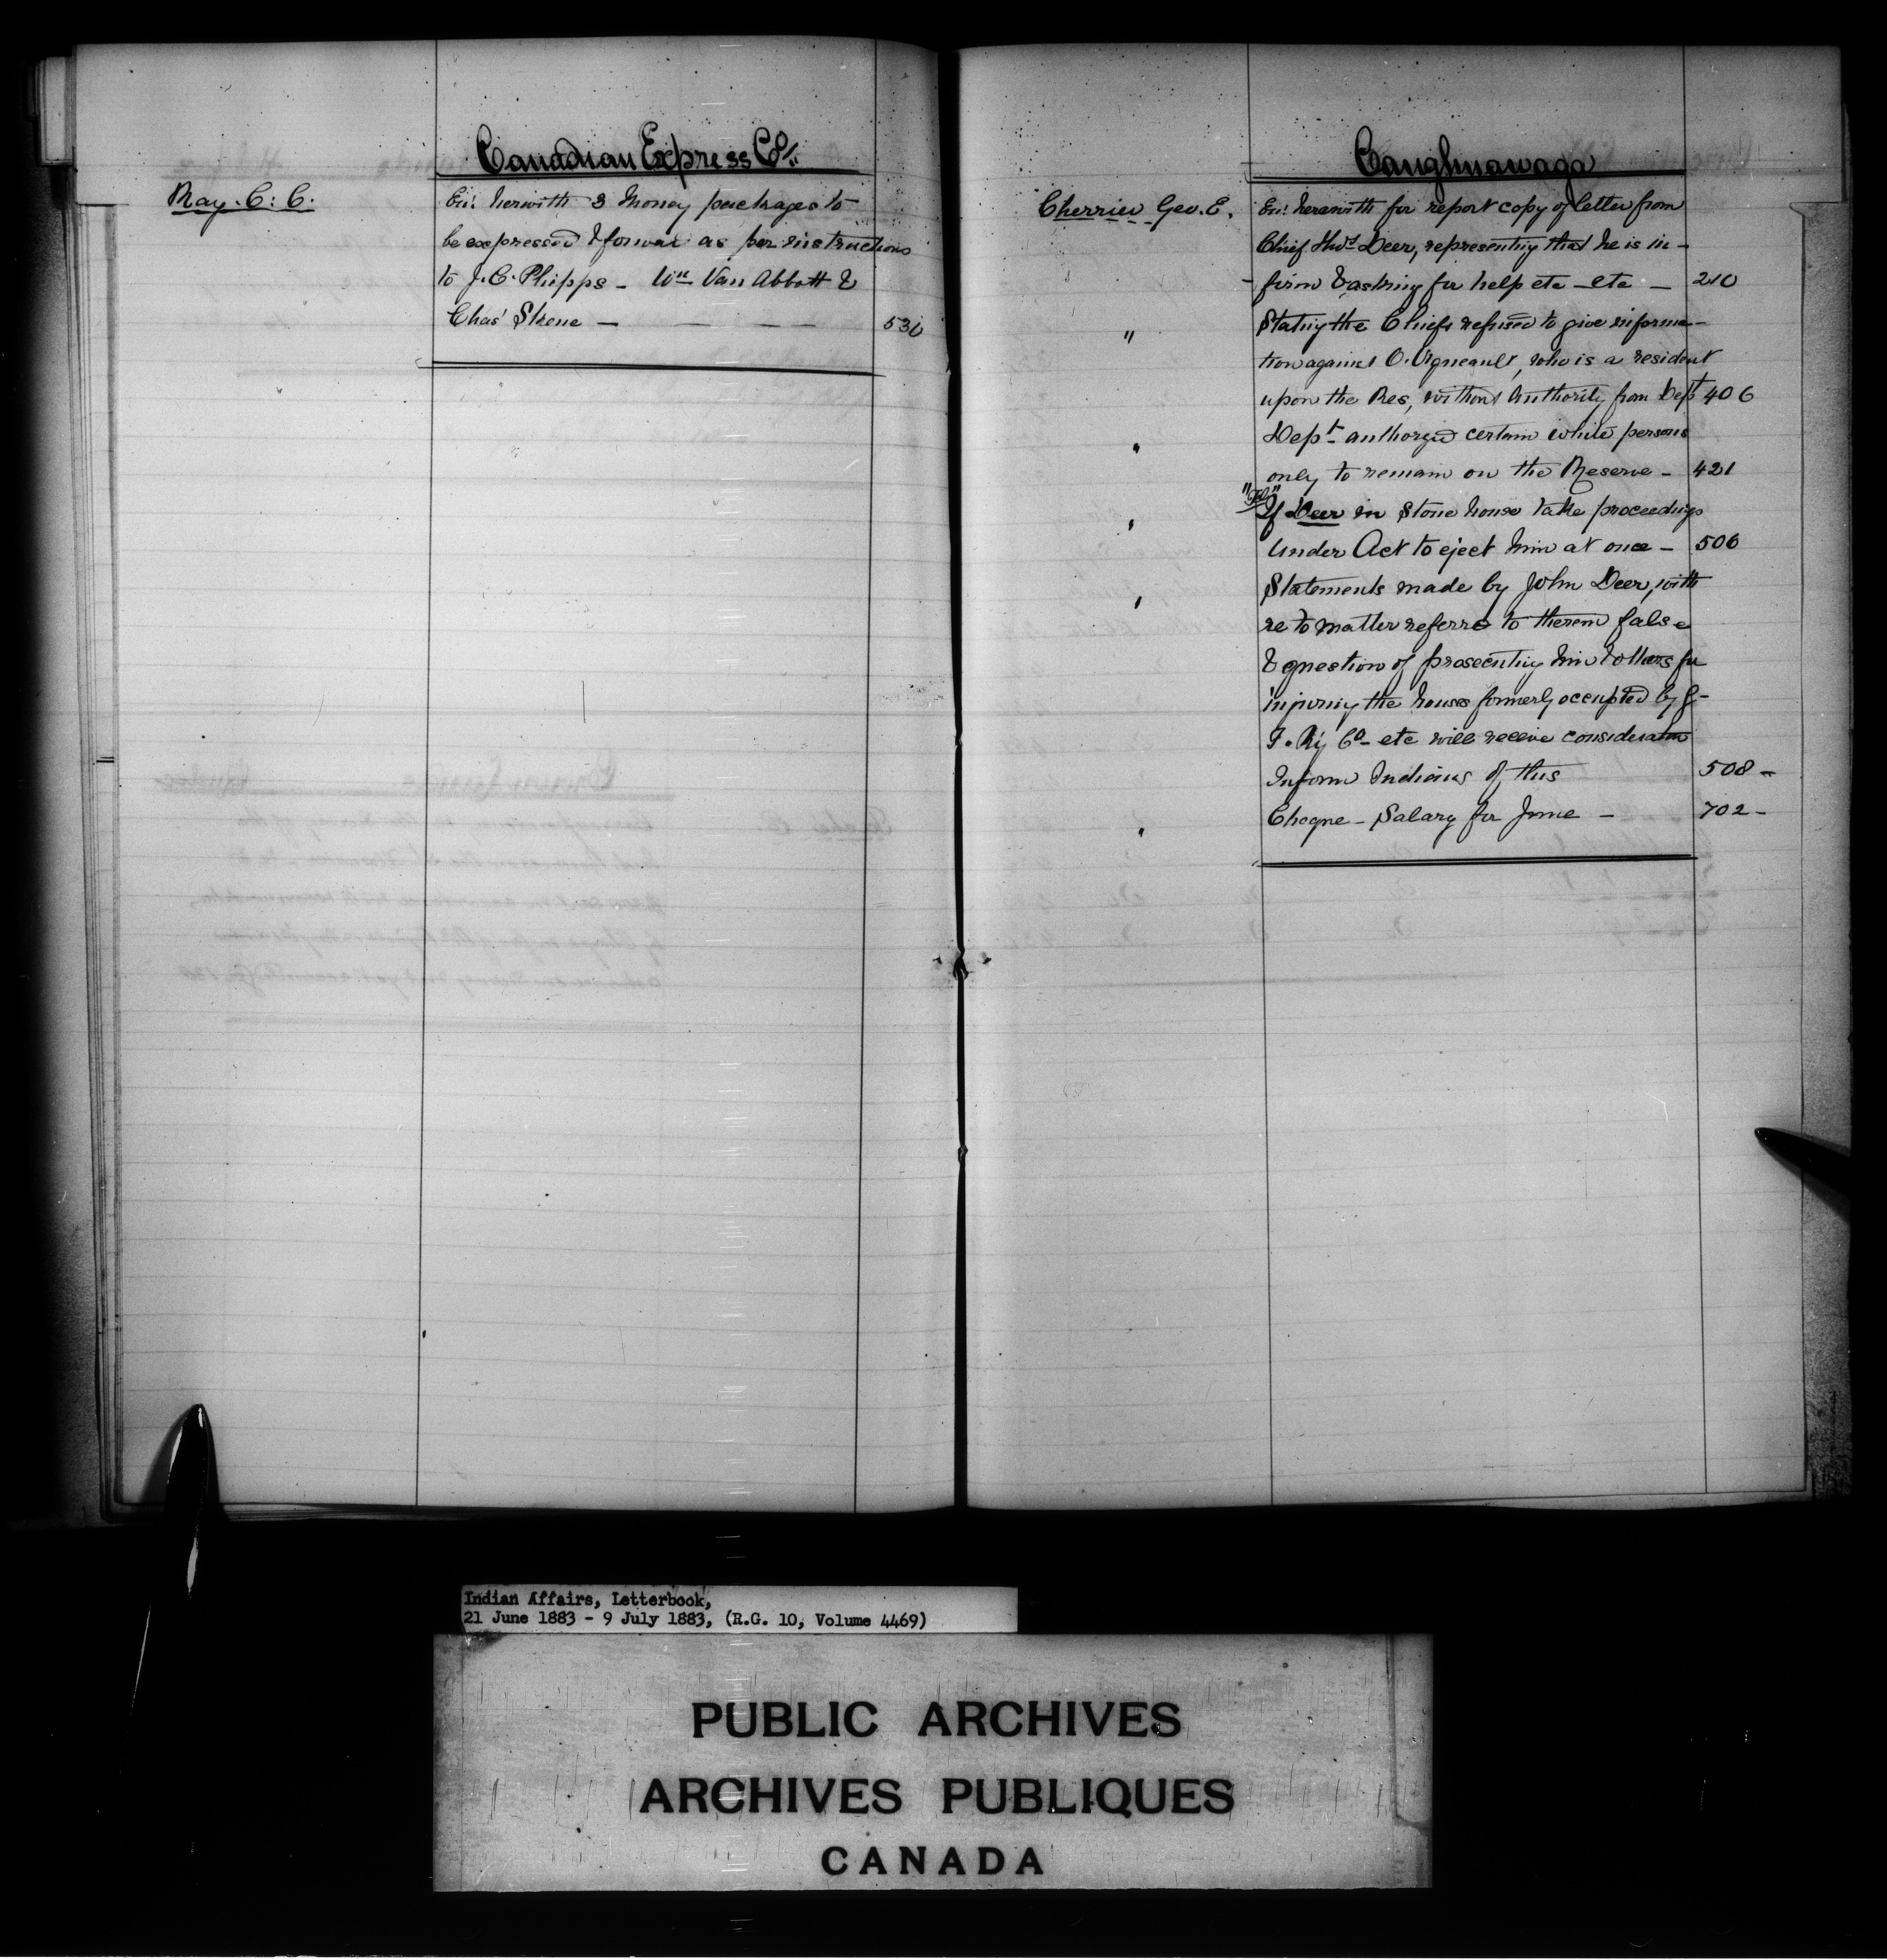 Canadian Express Co.
Ray. C. C.
Enc. herwith 3 Money packages to
be expressed & forwar as per instructions
to J. C. Phipps - Wm Van Abbott &
Chas Skene - 530
Caughnawaga
Cherrier Geo. E.
Enc. herewith for report copy of letter from
Chief Thos Deer, representing that he is in-
-firm & asking for help etc - etc - 210
" Stating the Chiefs refused to give informa-
tion against O. , who is a resident
upon the Res, without Authority from Dept 406
" Dept authorized certain white persons
only to remain on the Reserve - 421
"Tel"
" If Deer in Stone house take proceedings
Under Act to eject him at once - 506
" Statements made by John Deer, with
re to matter referred to therein false
& question of prosecuting him & others for
injuring the houses formerly occupied by G-
T. Ry Co - etc will receive consideration
Inform Indians of this 508 -
" Cheque - Salary for June - 702 -
Indian Affairs, Letterbook,
21 June 1883 - 9 July 1883, (R.G. 10, Volume 4469)
PUBLIC ARCHIVES
ARCHIVES PUBLIQUES
CANADA